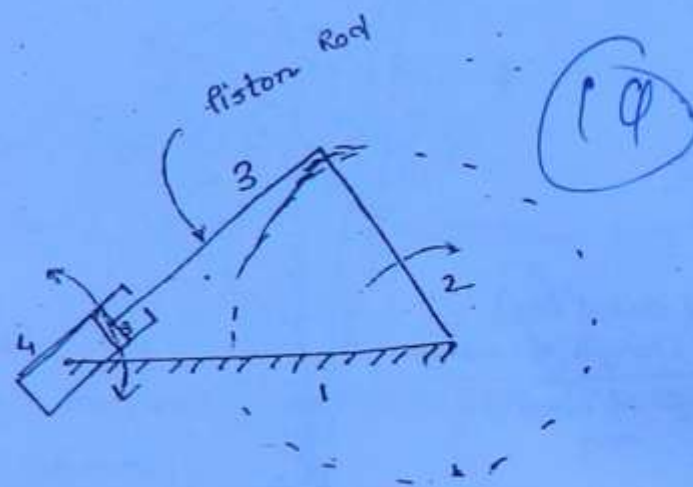 Piston Rod
19
3
2
4
1